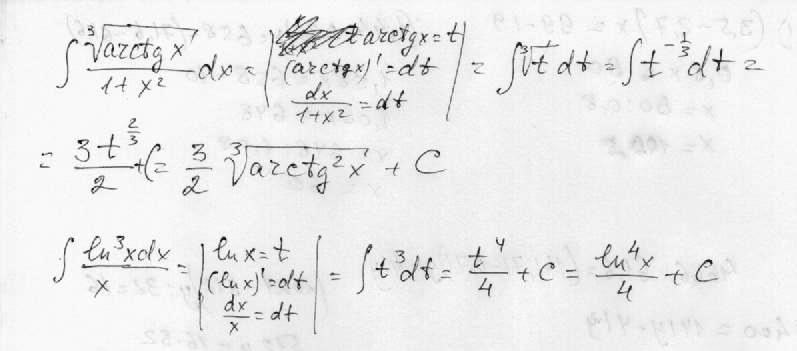 ∫ ∛(arctg x) / (1+x²) dx = | arctg x = t; (arctg x)' = dt; dx/(1+x²) = dt | = ∫ ∛t dt = ∫ t^(-1/3) dt =
= 3t^(2/3)/2 + C = 3/2 ∛(arctg² x) + C
∫ ln³x dx / x = | ln x = t; (ln x)' = dt; dx/x = dt | = ∫ t³ dt = t⁴/4 + C = ln⁴x/4 + C